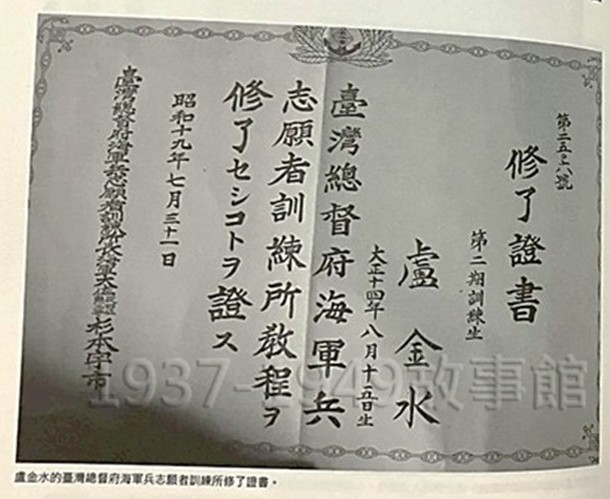 修了證書
第二期訓練生
盧金水
大正十四年八月十五日生
臺灣總督府海軍兵
志願者訓練所敎程ヲ
修了セシコトヲ證ス
昭和十九年七月三十一日
臺灣總督府海軍兵志願者訓練所長海軍大佐
杉本宇市
1937-1949故事館
盧金水的臺灣總督府海軍兵志願者訓練所修了證書。